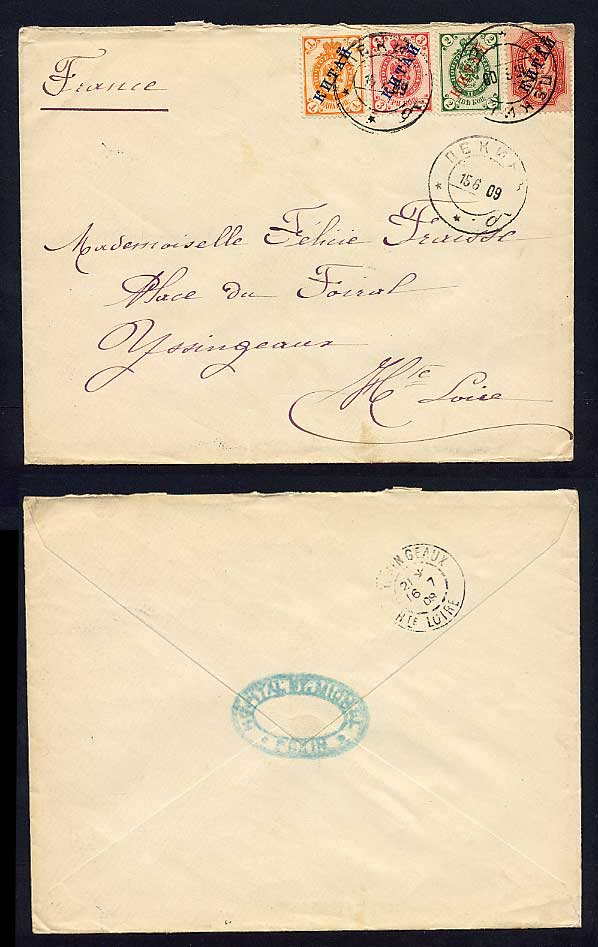 France
КИТАЙ КИТАЙ КИТАЙ КИТАЙ
ПЕКИНЪ
15 6 09
Mademoiselle Félicie Fraisse
Place du Foiral
Yssingeaux
Hte Loire
YSSINGEAUX
21 *
16 7
09
HTE LOIRE
PEKIN